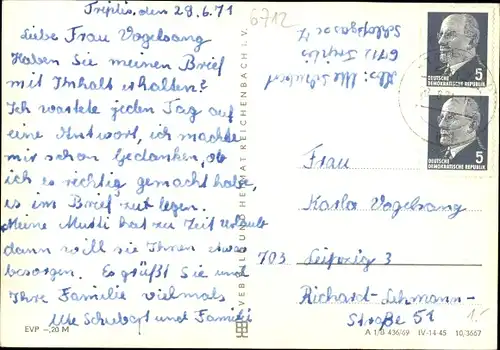 Triptis, den 28.6.71
6712
Liebe Frau Vogelsang
Haben Sie meinen Brief
mit Inhalt erhalten?
Ich wartete jeden Tag auf
eine Antwort, ich machte
mir schon Gedanken, ob
ich es richtig gemacht habe,
es im Brief zut legen.
Meine Mutti hat zu Zeit Urlaub
dann will sie Ihnen etwas
besorgen. Es grüßt Sie und
Ihre Familie vielmals
Ute Schubert und Familie
EVP -,20 M
VEB BILD UND HEIMAT REICHENBACH I. V.
Abs: Ute Schubert
6712 Triptis
5
DEUTSCHE
DEMOKRATISCHE REPUBLIK
5
DEUTSCHE
DEMOKRATISCHE REPUBLIK
Frau
Karla Vogelsang
703 Leipzig 3
Richard-Lehmann-
Straße 51
1.-
A 1/B 436/69 IV-14-45 10/3667